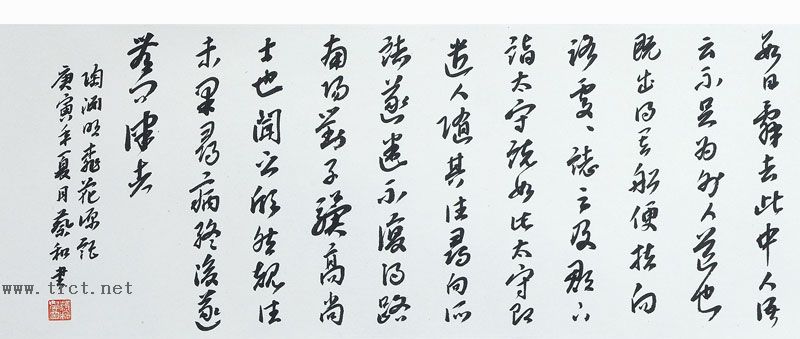 數日辭去此中人語
云不足為外人道也
既出得其船便扶向
路處々誌之及郡下
詣太守說如此太守即
遣人隨其往尋向所
誌遂迷不復得路
南陽劉子驥高尚
士也聞之欣然規往
未果尋病終後遂
無問津者
陶淵明桃花源記
庚寅年夏月蔡和書
www.trct.net